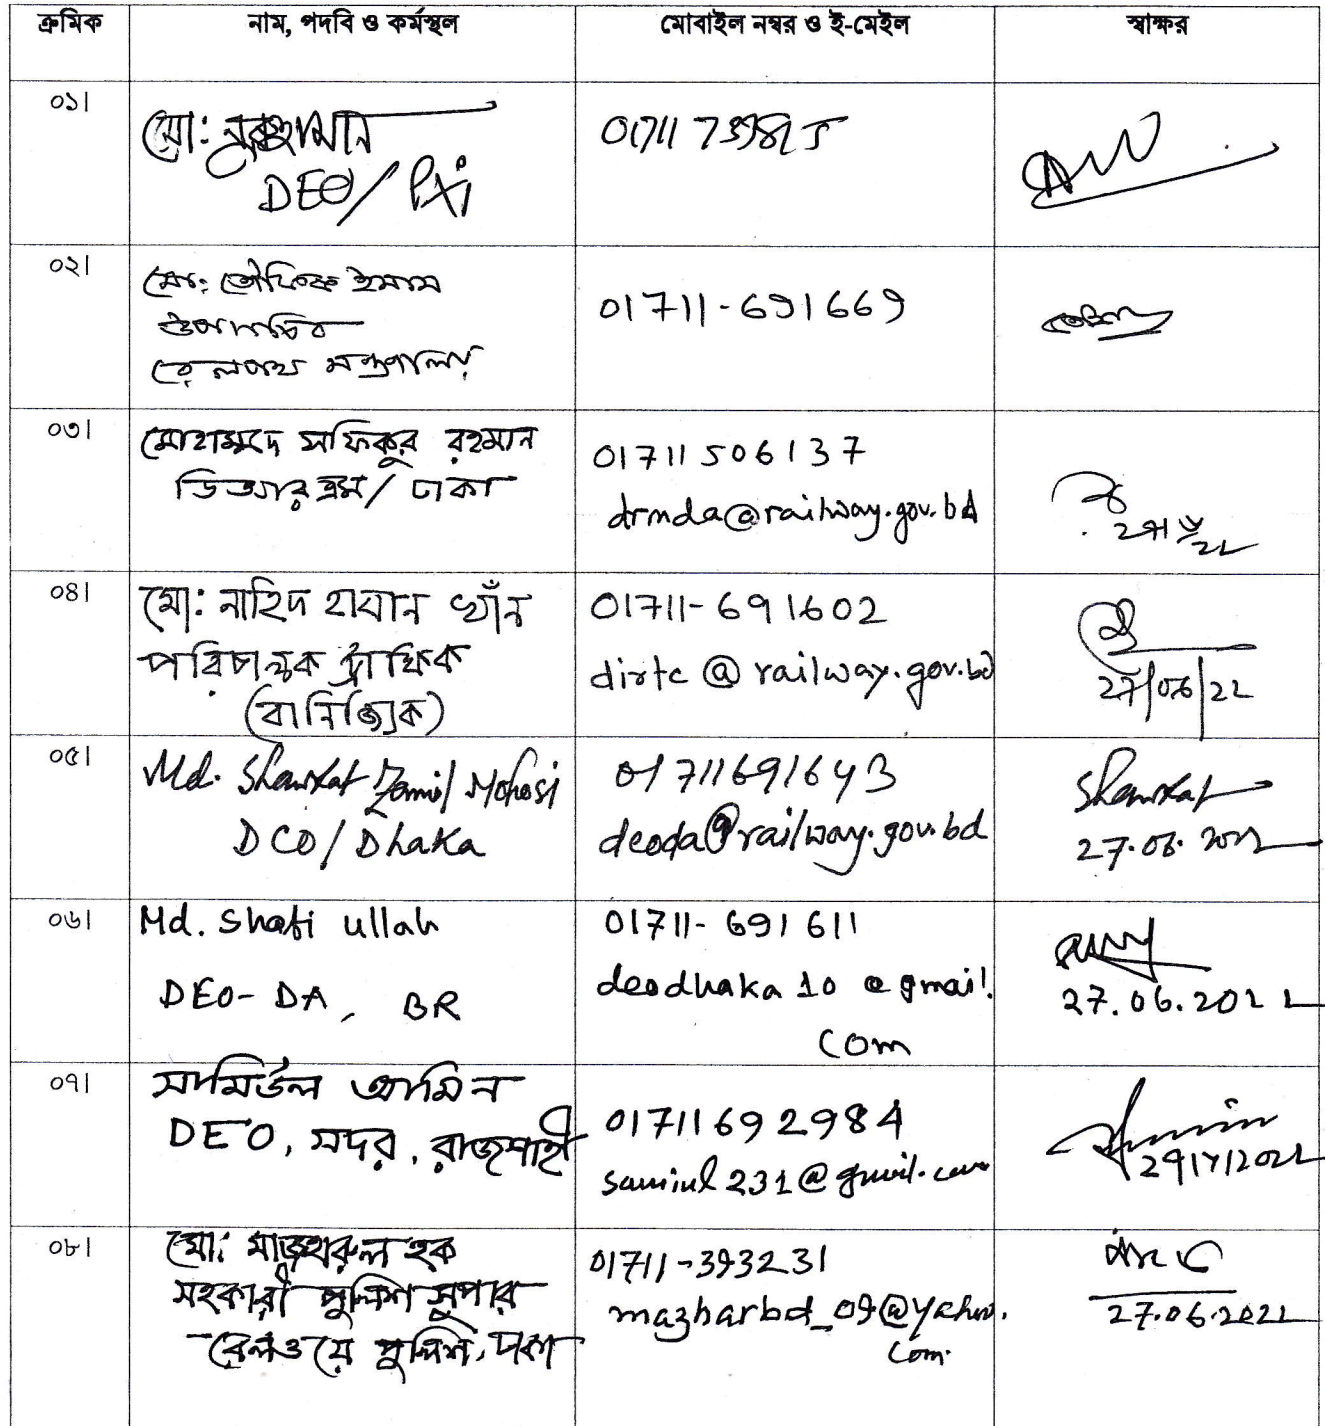 ক্রমিক নাম, পদবি ও কর্মস্থল মোবাইল নম্বর ও ই-মেইল স্বাক্ষর
০১।
মো: নুরুজ্জামান
DEO/
০২।
মো: তৌফিক ইমাম
উপসচিব
রেলপথ মন্ত্রণালয়
01711-691669
০৩।
মোহাম্মদ সফিকুর রহমান
ডিআরএম/ ঢাকা
01711506137
drmda@railway.gov.bd
০৪।
মো: নাহিদ হাসান খাঁন
পরিচালক ট্রাফিক
(বানিজ্যিক)
01711-691602
dirtc @ railway.gov.bd
27/06/22
০৫।
Md. Shawkat Jamil Mohosi
DCO/Dhaka
01711691643
deoda@railway.gov.bd
Shawkat
27.06.2022
০৬।
Md. Shafi ullah
DEO-DA, BR
01711-691611
deodhaka 10 @ gmail.
com
27.06.2022
০৭।
সামিউল আমিন
DEO, সদর, রাজশাহী
01711692984
samiul231@gmail.com
০৮।
মো: মাজহারুল হক
সহকারী পুলিশ সুপার
রেলওয়ে পুলিশ, ঢাকা
01711-393231
mazharbd_09@yahoo.
com.
27.06.2022